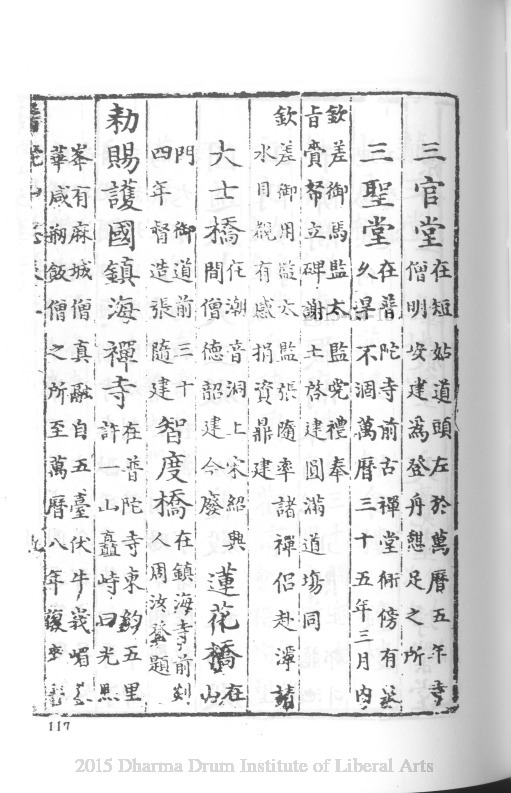 三官堂在短姑道頭左於萬曆五年寺
僧明安建為登舟憩足之所
三聖堂在普陀寺前古禪堂術傍有井
久旱不涸萬曆三十五年三月內
欽差御馬監太監党禮奉
旨賚帑立碑謝土啓建圓滿道塲同
欽差御用監太監張隨率諸禪侶赴潭請
水目覩有感捐資鼎建
大士橋在潮音洞上宋紹興
間僧德韶建今廢
蓮花橋在山
門御道前三十
四年督造張隨建
智度橋在鎮海寺前剡
人周汝登題
勅賜護國鎮海禪寺在普陀寺東約五里
許一山矗峙曰光熙
峯有麻城僧真融自五臺伏牛峨嵋
華咸剏飯僧之所至萬曆八年
117
2015 Dharma Drum Institute of Liberal Arts